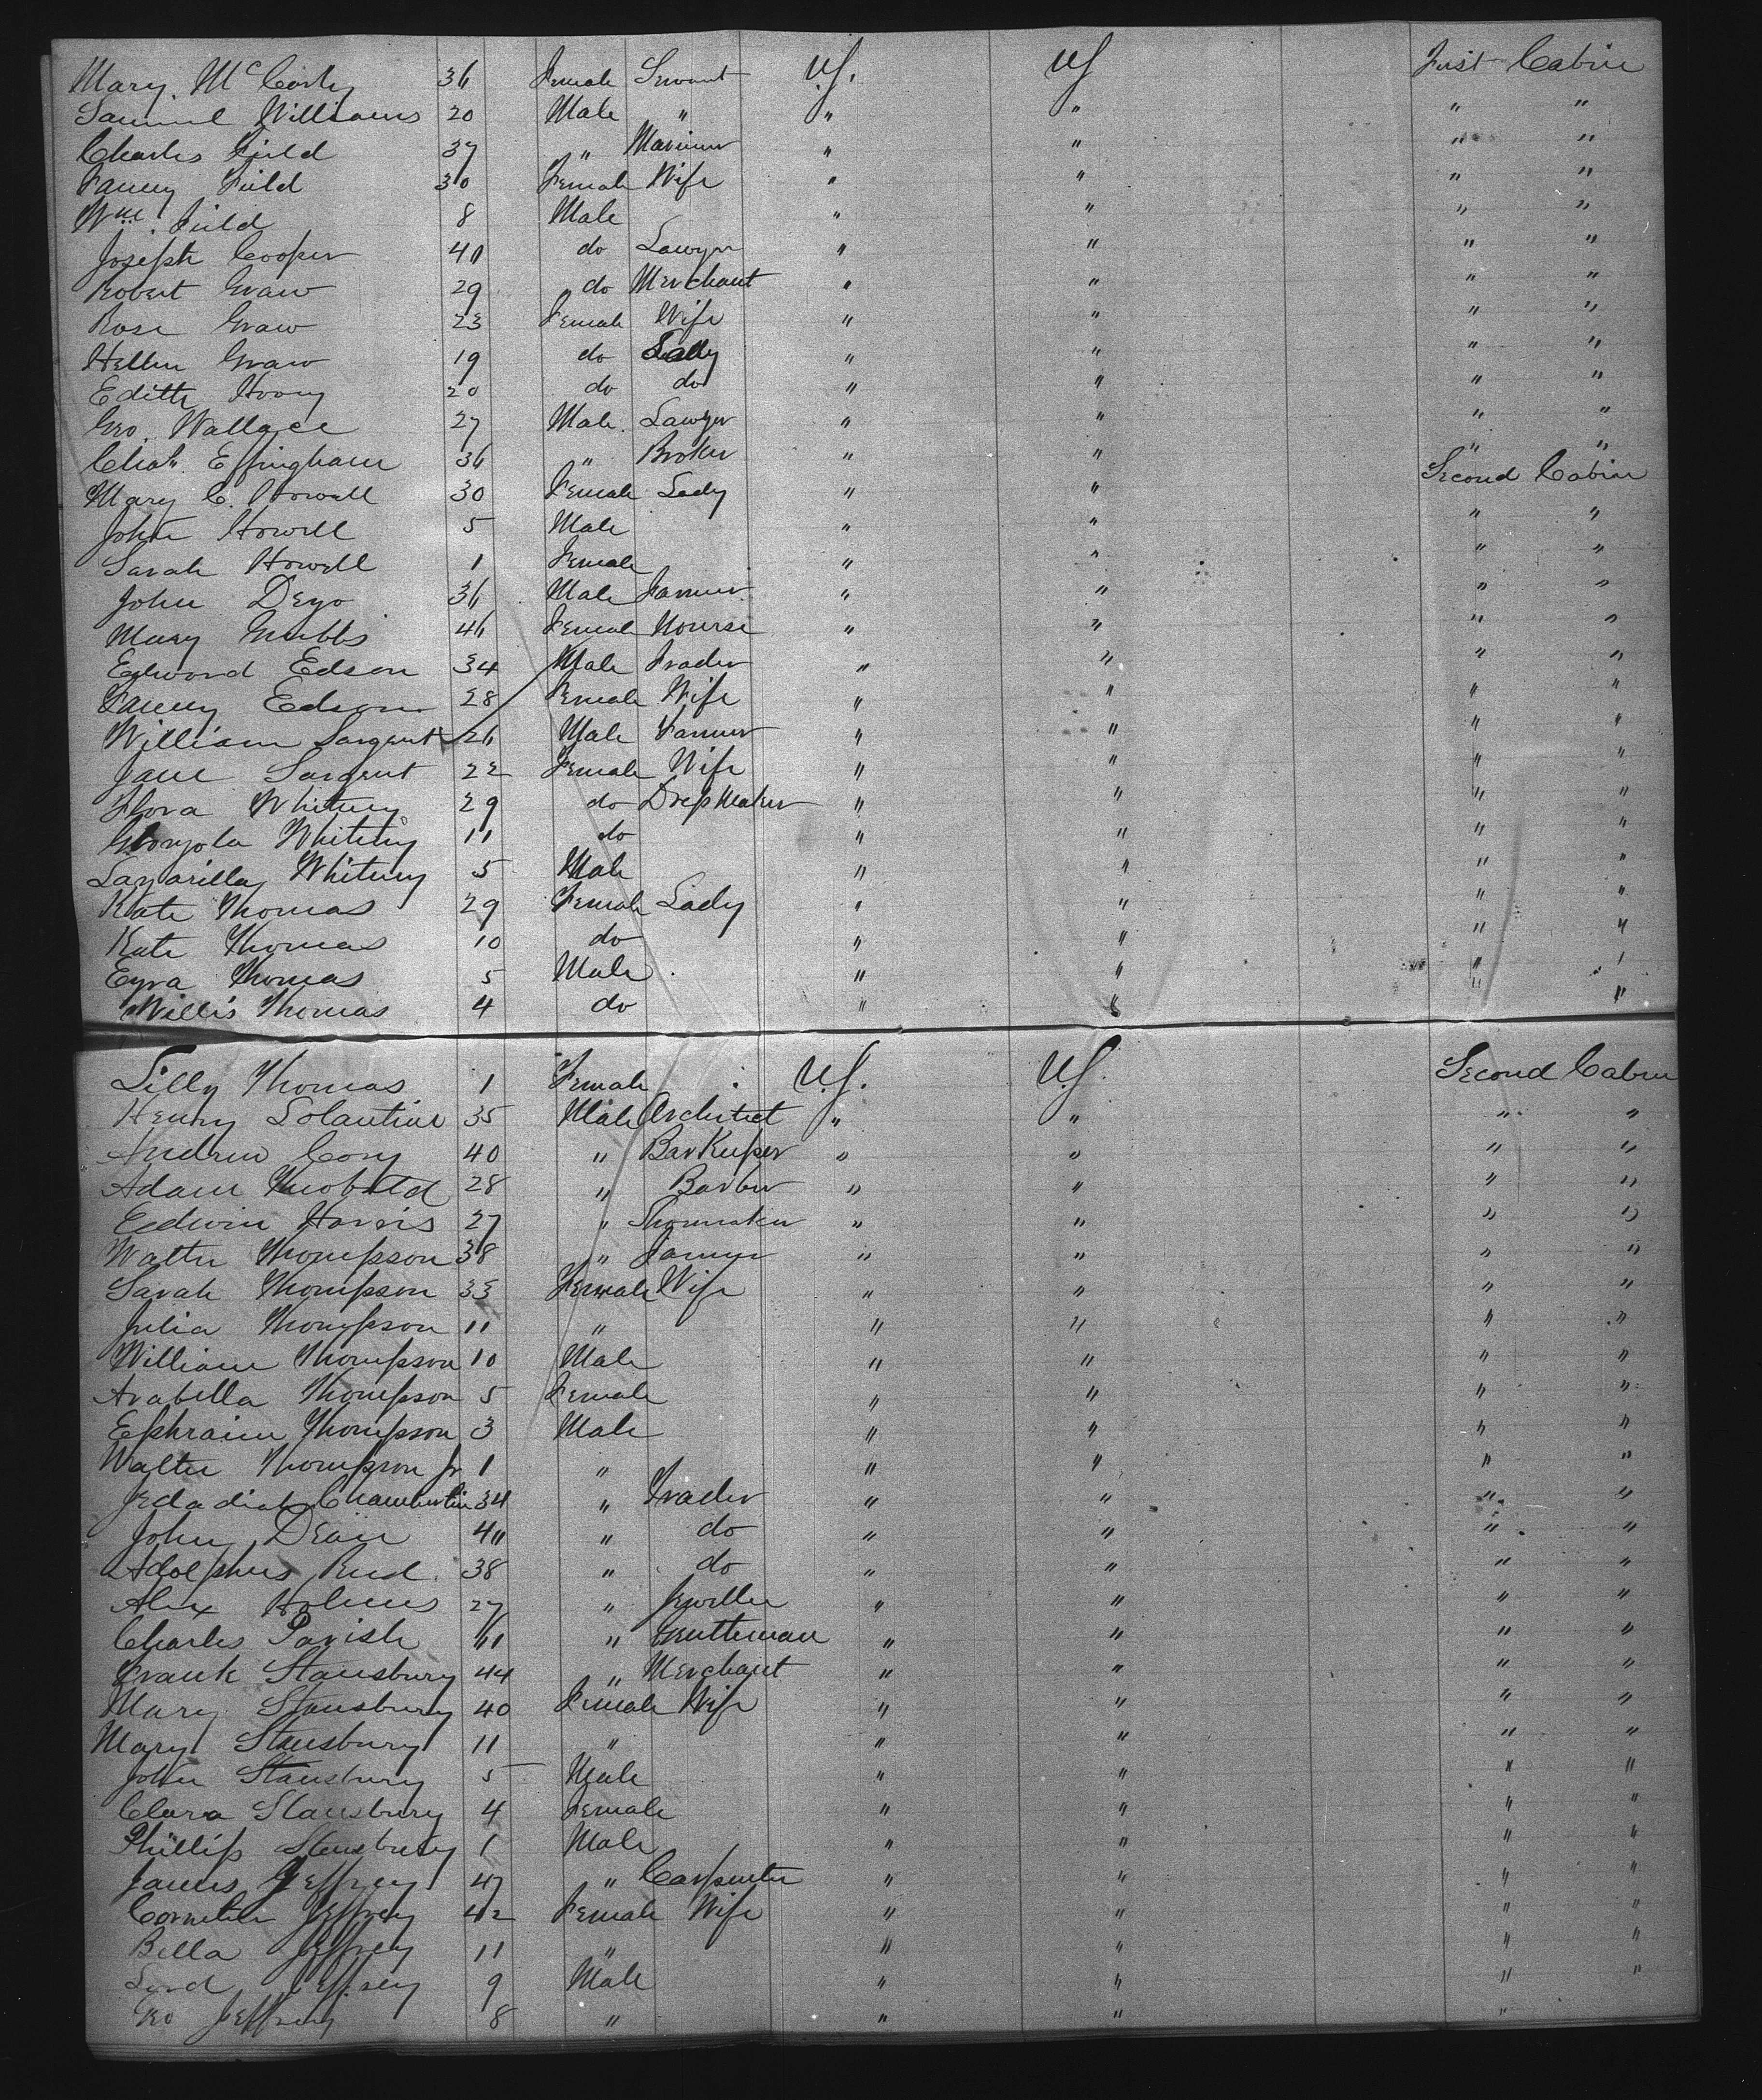 Mary McCarty 36 Female Servant U.S. U.S First Cabin
Samuel Williams 20 Male " " " " "
Charles Field 37 " Mariner " " " "
Fanny Field 30 Female Wife " " " "
Wm. Field 8 Male " " " "
Joseph Cooper 40 do Lawyer " " " "
Robert Graw 29 do Merchant " " " "
Rose Graw 23 Female Wife " " " "
Hellen Graw 19 do Lady " " " "
Edith 20 do do " " " "
Geo. Wallace 27 Male Lawyer " " " "
Chas. Effingham 36 " Broker " " " "
Mary C. Howell 30 Female Lady " " Second Cabin
John Howell 5 Male " " " "
Sarah Howell 1 Female " " " "
John Deyo 36 Male Farmer " " " "
Mary Grubbs 46 Female Nourse " " " "
Edward Edson 34 Male Trader " " " "
Fanny Edson 28 Female Wife " " " "
William Sargent 26 Male Farmer " " " "
Jane Sargent 22 Female Wife " " " "
Flora Whitney 29 do Dressmaker " " " "
Whitney 11 do " " " "
Whitney 5 Male " " " "
Kate Thomas 29 Female Lady " " " "
Kate Thomas 10 do " " " "
Ezra Thomas 5 Male " " " "
Willis Thomas 4 do " " " "
Lilly Thomas 1 Female U.S. U.S. Second Cabin
Henry 35 Male Architect " " " "
Andrew Cory 40 " BarKeeper " " " "
Adam 28 " Barber " " " "
Edwin Harris 27 " Shoemaker " " " "
Walter Thompson 38 " Farmer " " " "
Sarah Thompson 33 Female Wife " " " "
Julia Thompson 11 " " " " "
William Thompson 10 Male " " " "
Arabella Thompson 5 Female " " " "
Ephraim Thompson 3 Male " " " "
Walter Thompson Jr 1 " " " " "
Jedadiah Chamberlin 34 " Trader " " " "
John Dean 40 " do " " " "
Adolphus Reed 38 " do " " " "
Alex Holmes 27 " Jeweller " " " "
Charles Parish " Gentleman " " " "
Frank Stansbury 44 " Merchant " " " "
Mary Stansbury 40 Female Wife " " " "
Mary Stansbury 11 " " " " "
John Stansbury 5 Male " " " "
Clara Stansbury 4 Female " " " "
Phillip Stansbury 1 Male " " " "
James Jeffrey 47 " Carpenter " " " "
Cornelia Jeffrey 42 Female Wife " " " "
Bella Jeffrey 11 " " " " "
Jeffrey 9 Male " " " "
Geo Jeffrey 8 " " " "